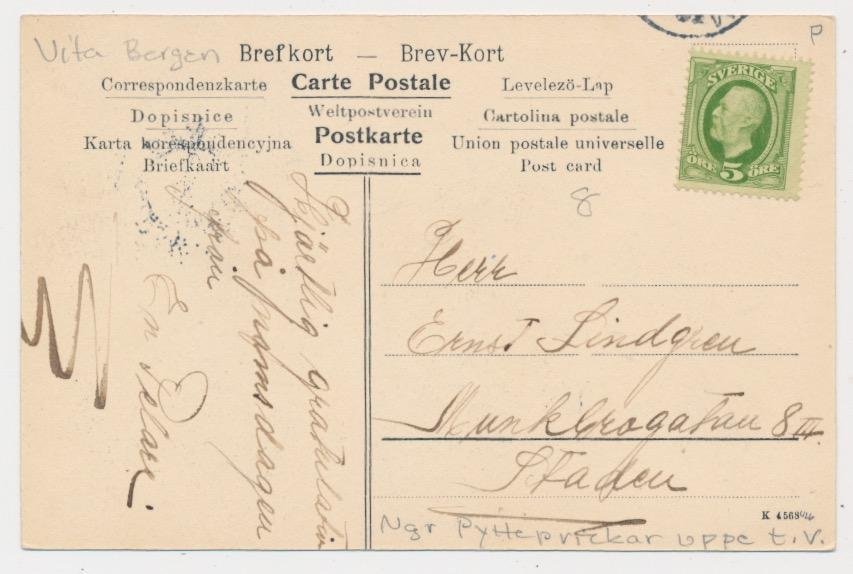 Vita Bergen
Brefkort — Brev-Kort
Correspondenzkarte Carte Postale Levelezö-Lap
Dopisnice Weltpostverein Cartolina postale
Karta korespondencyjna Postkarte Union postale universelle
Briefkaart Dopisnica Post card
P
SVERIGE
ÖRE 5 ÖRE
8
Hjärtlig gratulation
på namnsdagen
från
En Velan.
Herr
Ernst Lindgren
Munkbrogatan 8 III
Staden
K 4568
Ngr Pytteprickar uppe t.v.